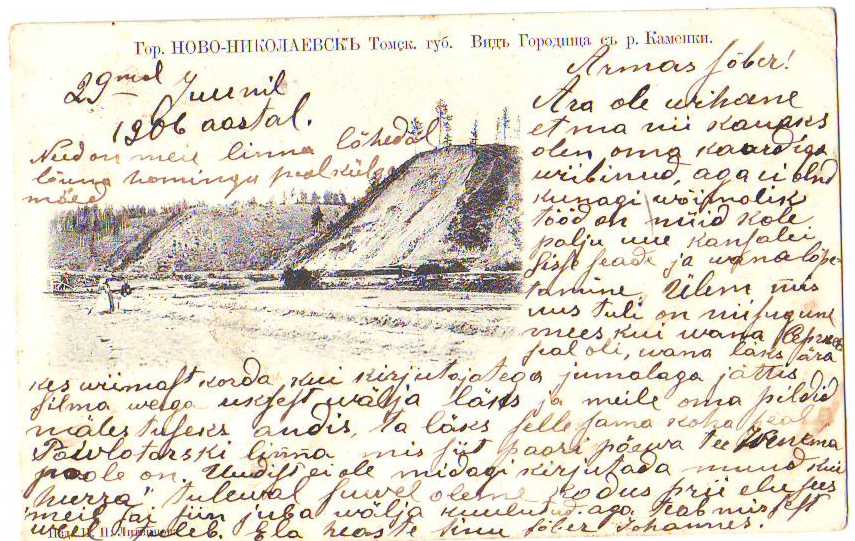 Гор. НОВО-НИКОЛАЕВСКЪ Томск. губ. Видъ Городища съ р. Каменки.
29mal Juunil
1906 aastal.
Need on meie linna lõhedal
lõuna homingu pool külge
mäed
Armas sõber!
Ära ole wihane
et ma nii kauaks
olen oma kaardiga
wiibinud, aga ei olnd
kunagi wõimalik
tööd on nüid kole
palju uue kanselei
sisse seade ja wana lõpe-
tamine. Ülem mis
uus tuli on niisugune
mees kui wana
pal oli, wana läks ära
kes wiimast korda, kui kirjutajatega jumalaga jättis
silma weega uksest walja läks ja meile oma pildid
mälestuseks andis, ta läks selle sama koha peal
Pawlotarski linna mis siit paari päewa tee Wenema
poole on. Uudist ei ole midagi kirjutada muud kui
"hurra" tulewal suwel oleme kodus prii elu sees
meil sai siin juba wälja kuulutud. aga teab mis sest
weel tuleb. Ela heaste sinu sõber Johannes.
Изд. Н. П. Литвинова